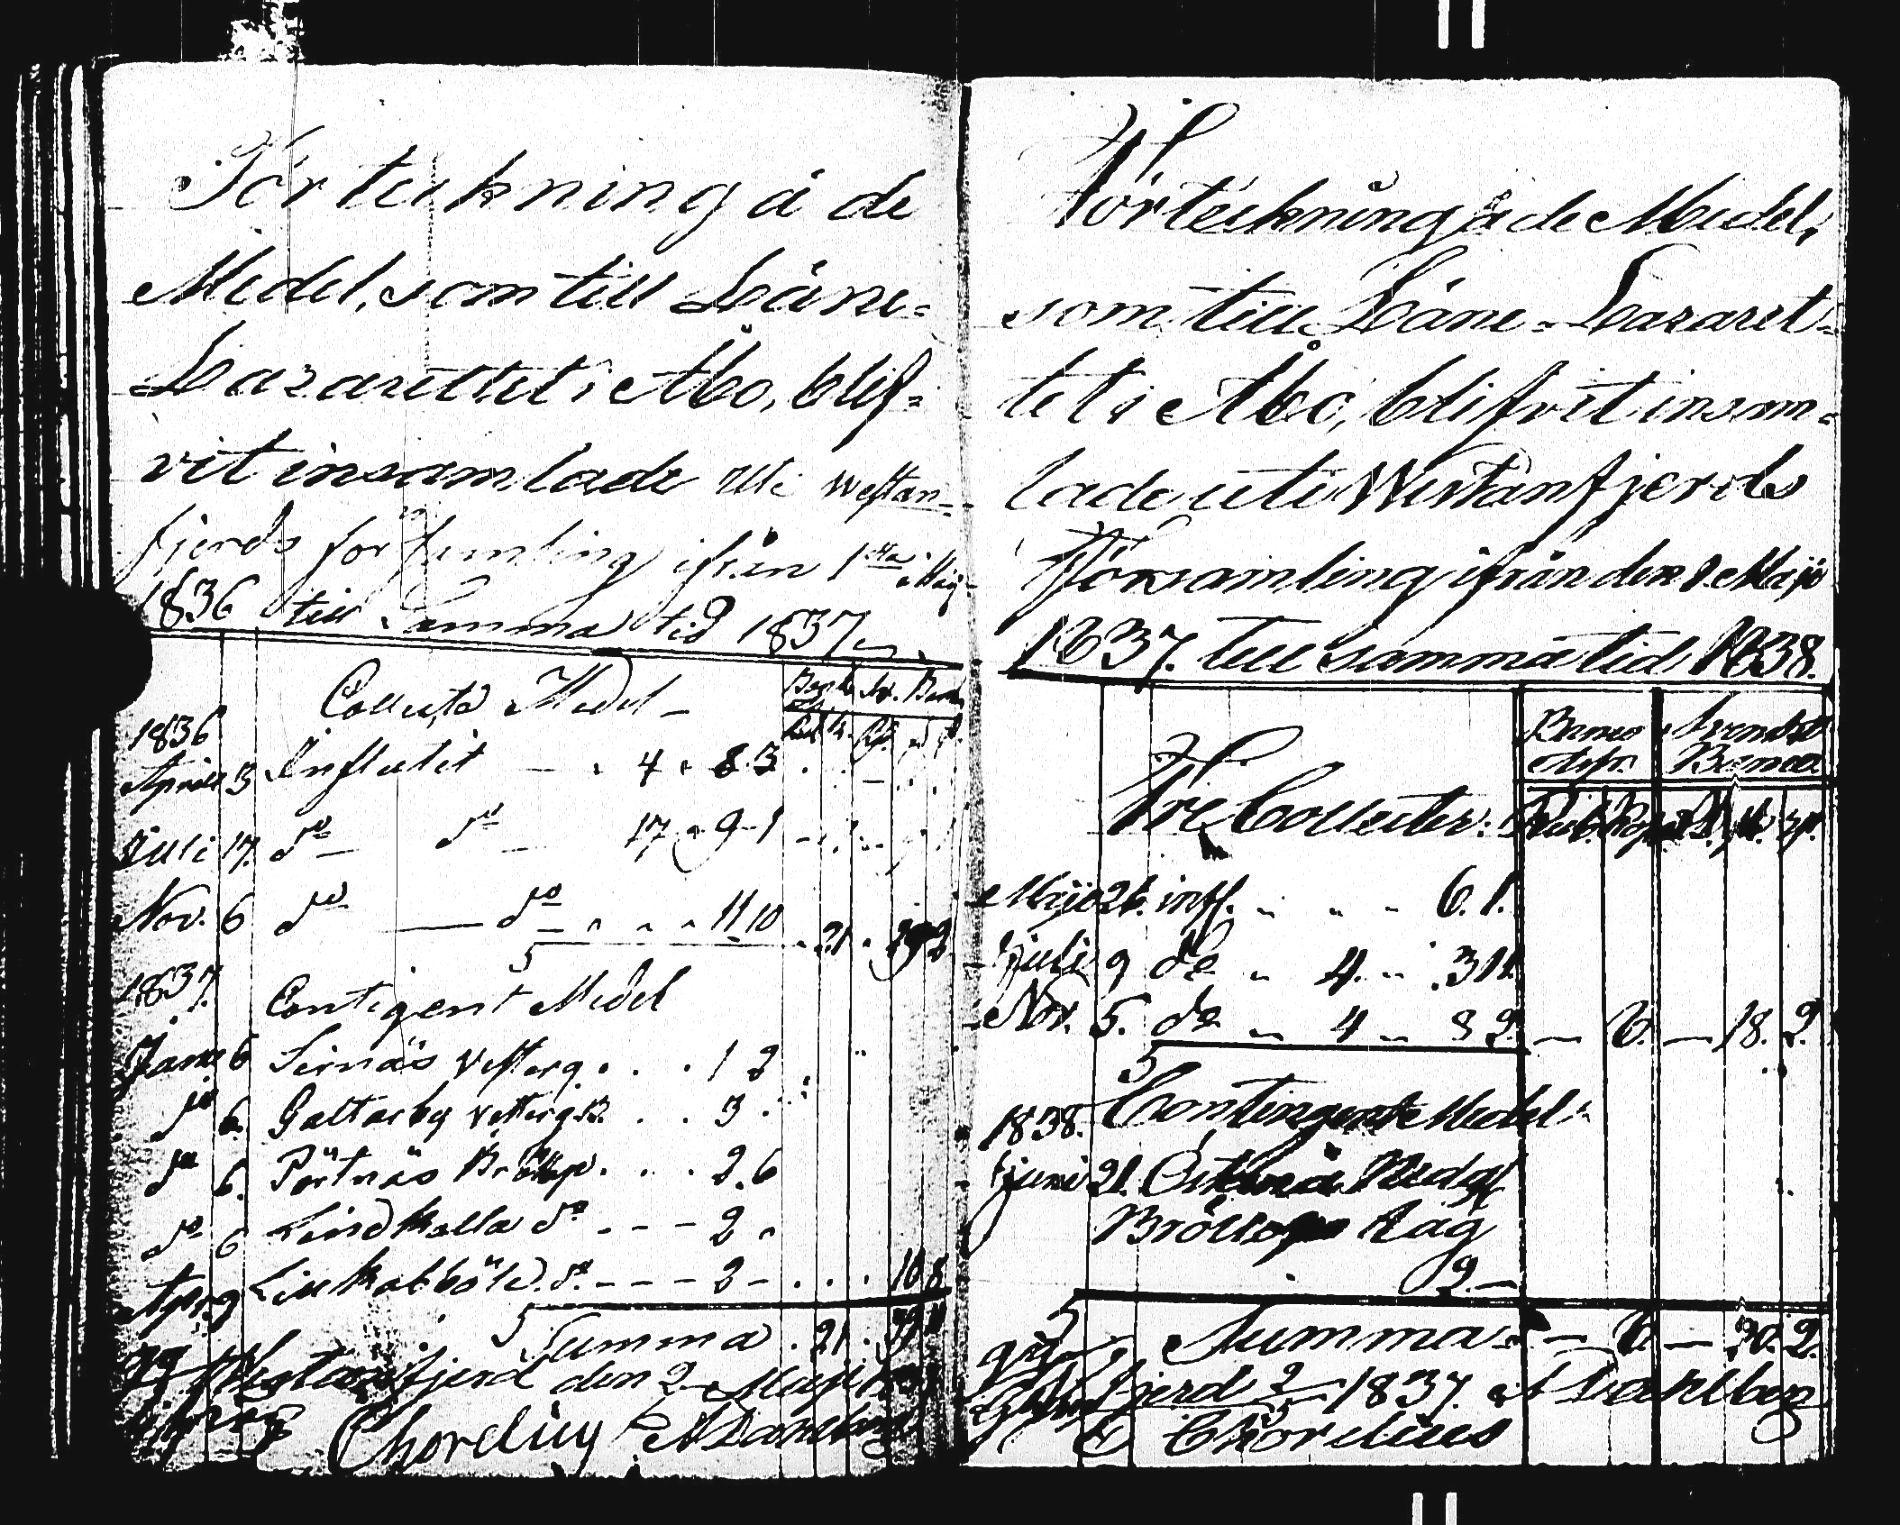 Förteckning å de
Medel, som till Läne-
Lazarettet i Åbo, blif-
vit insamlade uti Westan-
fjerds församling ifrån 1sta Maij
1836 till Samma tid 1837
Collect Medel
1836
Aprill 3 Influtit - . 4 . 8.3
Juli 17. do do 17 . 9 1
Nov. 6 do do . . . 11 10 . 21 .
1837.
Contigent Medel
6 Sirnäs . . . 1 2
do 6. Galtarby . . 3
do 6. Pörtnäs Bröllop . . . 2.6
do 6 Lindkulla do . - - - 2
Apr. 9 do. - - - 2 - . . . 10 8
Summa . 21 .
Westanfjerd den 2 Maji
Chorelius A Dahlberg
Förteckning å de Medel,
som till Läne-Lazaret-
tet i Åbo, blifvit insam-
lade uti Westanfjerds
Församling ifrån den 1 Maji
1837. till samma tid 1838.
Banco Assr. Svenskt Banco
Tre Collecter: Rub. Kop. Rd. sk. rst.
Maji 26. infl. " " - 6. 1.
Juli 9 do " 4. " 3 11.
Nov. 5. do " 4 " 8 2. - 6. - 18. 2.
Contingent Medel
1838.
Juni 21. Nedg
Bröllops Lag
2. -
Summa - 6 - 20. 2.
fjerd 2/5 1837. A Dahlberg
C Chorelius